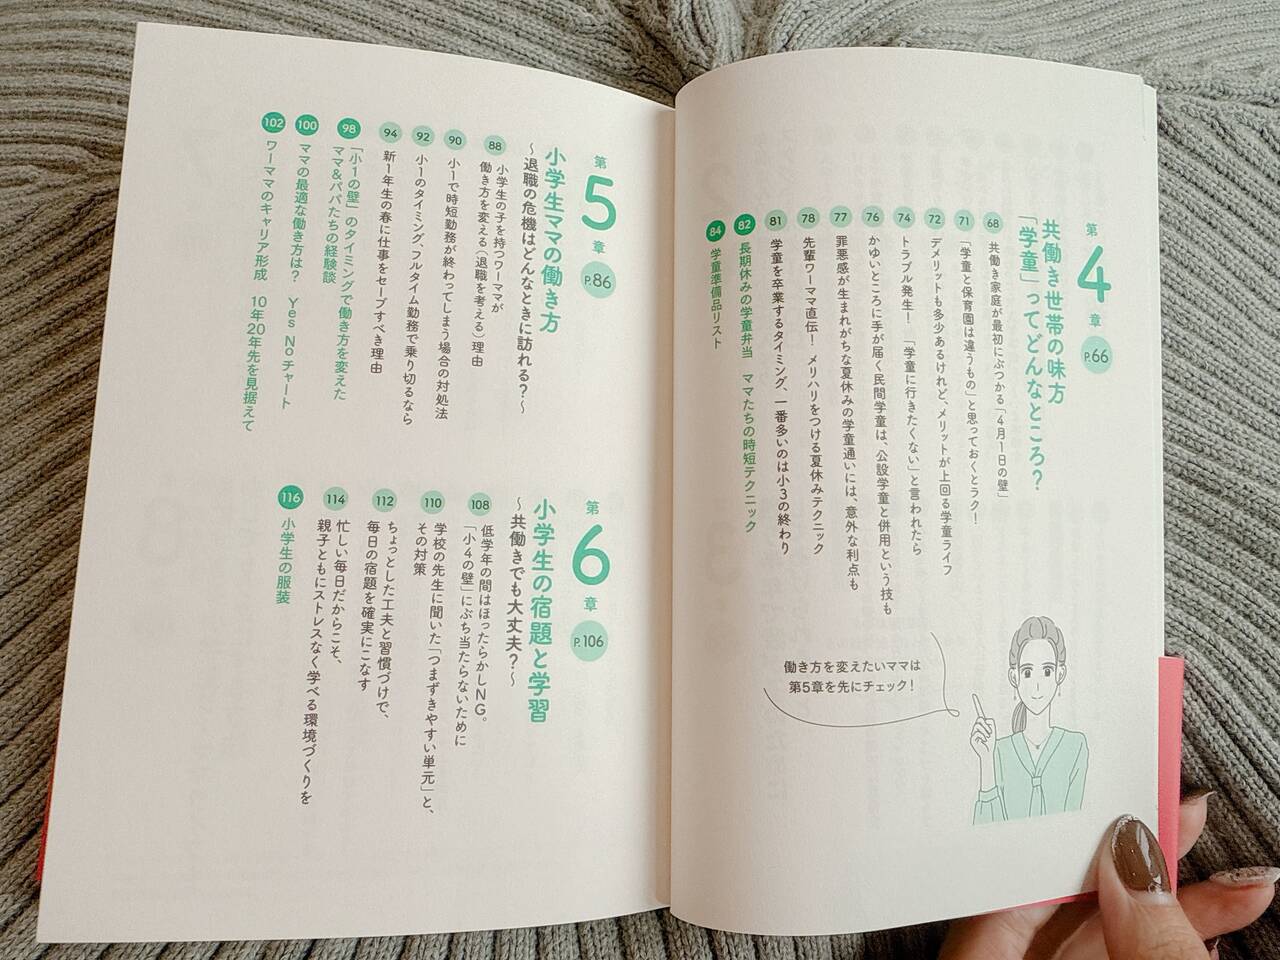 第
4
章
P.66
共働き世帯の味方
「学童」ってどんなところ?
68
共働き家庭が最初にぶつかる「4月1日の壁」
71
「学童と保育園は違うもの」と思っておくとラク!
72
デメリットも多少あるけれど、メリットが上回る学童ライフ
74
トラブル発生! 「学童に行きたくない」と言われたら
76
かゆいところに手が届く民間学童は、公設学童と併用という技も
77
罪悪感が生まれがちな夏休みの学童通いには、意外な利点も
78
先輩ワーママ直伝! メリハリをつける夏休みテクニック
81
学童を卒業するタイミング、一番多いのは小3の終わり
82
長期休みの学童弁当 ママたちの時短テクニック
84
学童準備品リスト
働き方を変えたいママは
第5章を先にチェック!
第
5
章
P.86
小学生ママの働き方
~退職の危機はどんなときに訪れる?~
88
小学生の子を持つワーママが
働き方を変える(退職を考える)理由
90
小1で時短勤務が終わってしまう場合の対処法
92
小1のタイミング、フルタイム勤務で乗り切るなら
94
新1年生の春に仕事をセーブすべき理由
98
「小1の壁」のタイミングで働き方を変えた
ママ&パパたちの経験談
100
ママの最適な働き方は? Yes Noチャート
102
ワーママのキャリア形成 10年20年先を見据えて
第
6
章
P.106
小学生の宿題と学習
~共働きでも大丈夫?~
108
低学年の間はほったらかしNG。
「小4の壁」にぶち当たらないために
110
学校の先生に聞いた「つまずきやすい単元」と、
その対策
112
ちょっとした工夫と習慣づけで、
毎日の宿題を確実にこなす
114
忙しい毎日だからこそ、
親子ともにストレスなく学べる環境づくりを
116
小学生の服装